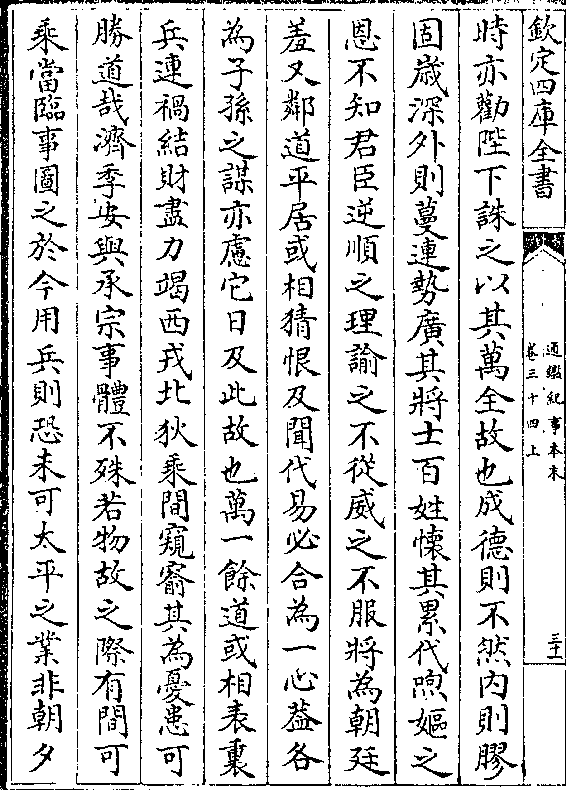 欽定四庫全書
通鑑紀事本末
卷三十四上
三十一
時亦勸陛下誅之以其萬全故也成德則不然内則膠
固歲深外則蔓連勢廣其將士百姓懐其累代煦嫗之
恩不知君臣逆順之理諭之不從威之不服將為朝廷
羞又鄰道平居或相猜恨及聞代易必合為一心葢各
為子孫之謀亦慮它日及此故也萬一餘道或相表裏
兵連禍結財盡力竭西戎北狄乘間窺窬其為憂患可
勝道哉濟季安與承宗事體不殊若物故之際有間可
乘當臨事圖之於今用兵則恐未可太平之業非朝夕